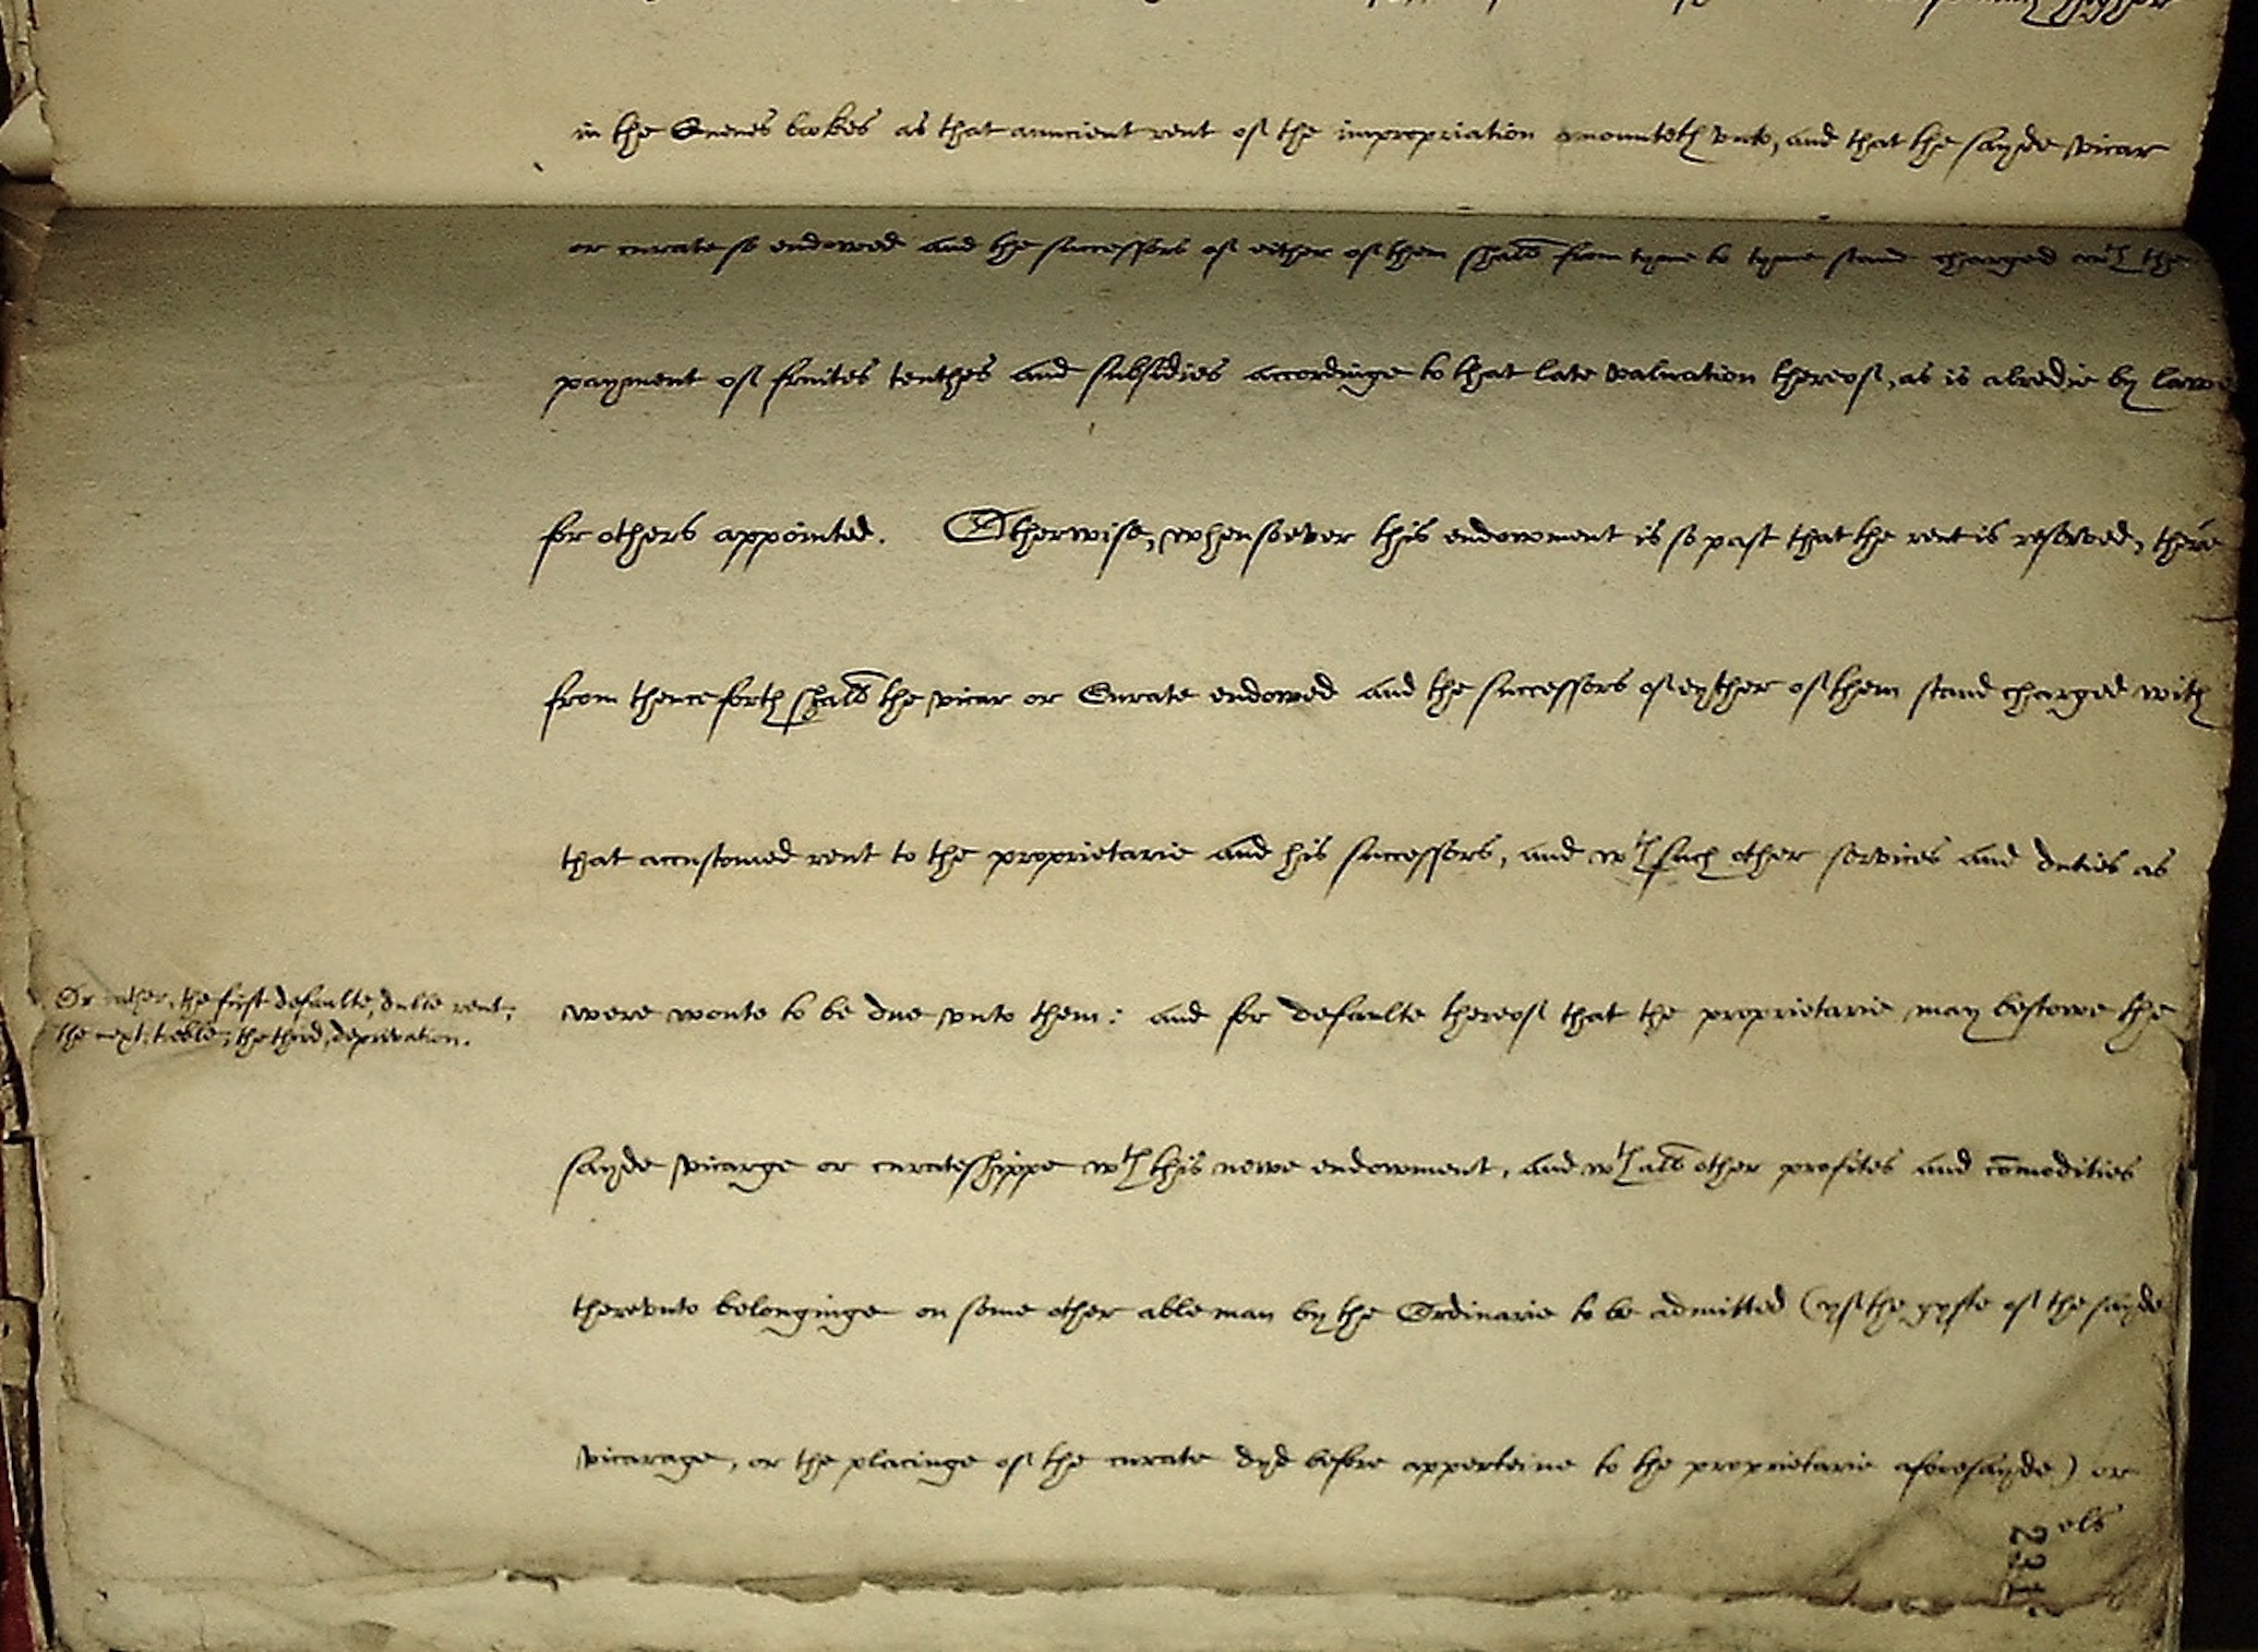 in the Quenes bookes as that auncient rent of the impropriation amounteth vnto, and that the sayde vicar
or curate so endowed and the successors of either of them shall from tyme to tyme stand charged wth the
payment of fruites tenthes and subsidies accordinge to that late valuation thereof, as is alredie by lawe
for others appointed. Otherwise, whensoever this endowment is so past that the rent is reserved, there
from thence forth shall the vicar or Curate endowed and the successors of eyther of them stand charged with
that accustomed rent to the proprietarie and his successors, and wth such other services and duties as
Or rather, the first defaulte, duble rent;
the next, treble; the third, deprivation.
were wonte to be due vnto them: and for defaulte thereof that the proprietarie may bestowe the
sayde vicarge or curateshippe wth this newe endowment, and wth all other profites and comodities
therevnto belonginge on some other able man by the Ordinarie to be admitted (yf the gyfte of the sayde
vicarage, or the placinge of the curate dyd before apperteine to the proprietarie aforesayde) or
els
231